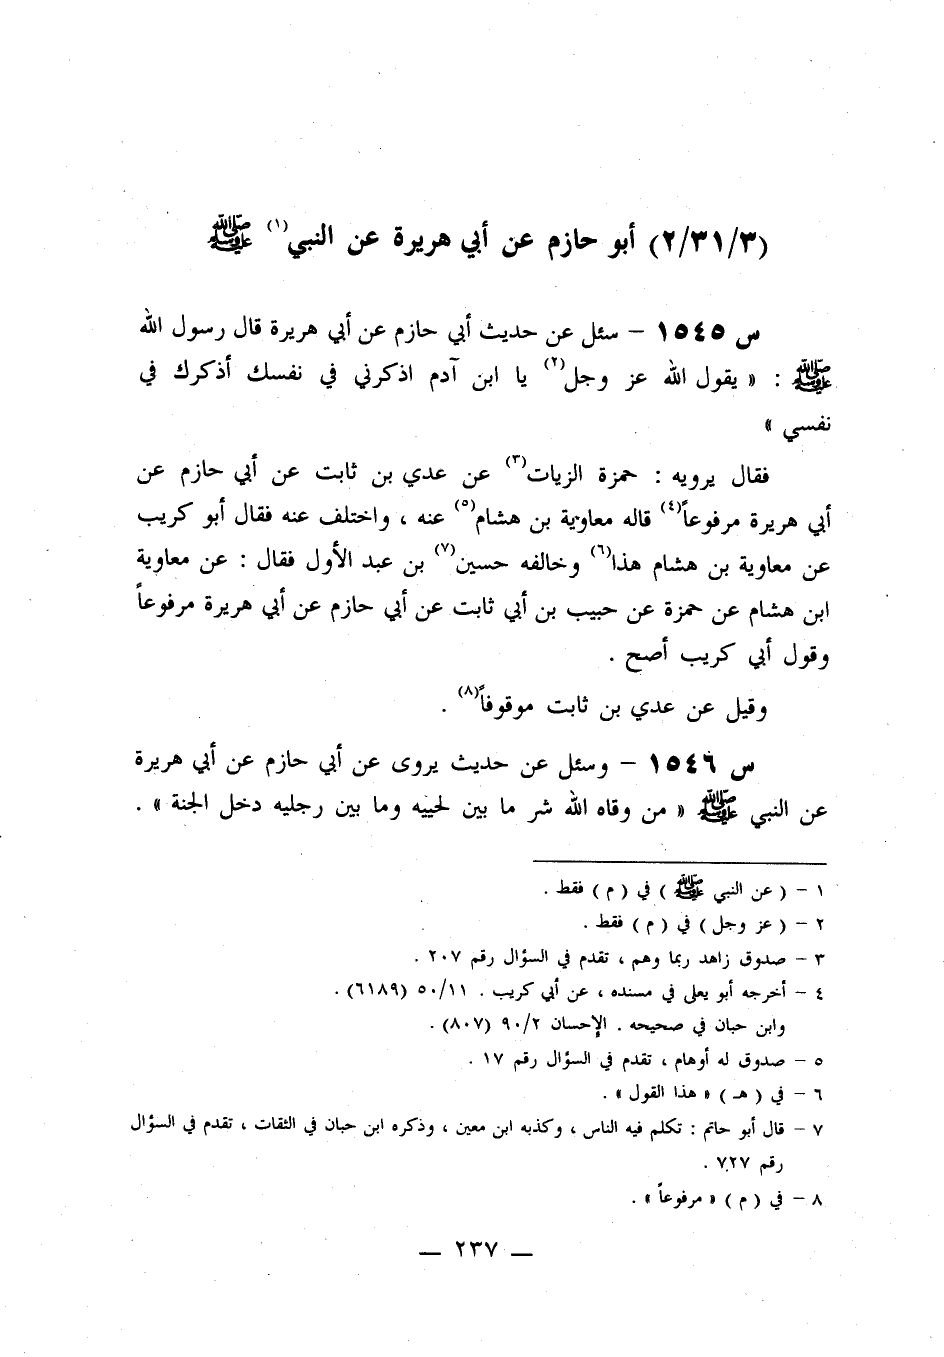 (٢/٣١/٣) أبو حازم عن أبي هريرة عن النبي(١) ﷺ
س ١٥٤٥ – سئل عن حديث أبي حازم عن أبي هريرة قال رسول الله
ﷺ : « يقول الله عز وجل(٢) يا ابن آدم اذكرني في نفسك أذكرك في
نفسي »
فقال يرويه : حمزة الزيات(٣) عن عدي بن ثابت عن أبي حازم عن
أبي هريرة مرفوعاً(٤) قاله معاوية بن هشام(٥) عنه ، واختلف عنه فقال أبو كريب
عن معاوية بن هشام هذا(٦) وخالفه حسين(٧) بن عبد الأول فقال : عن معاوية
ابن هشام عن حمزة عن حبيب بن أبي ثابت عن أبي حازم عن أبي هريرة مرفوعاً
وقول أبي كريب أصح .
وقيل عن عدي بن ثابت موقوفاً(٨) .
س ١٥٤٦ – وسئل عن حديث يروى عن أبي حازم عن أبي هريرة
عن النبي ﷺ « من وقاه الله شر ما بين لحييه وما بين رجليه دخل الجنة » .
١ – ( عن النبي ﷺ ) في ( م ) فقط .
٢ – ( عز وجل ) في ( م ) فقط .
٣ – صدوق زاهد ربما وهم ، تقدم في السؤال رقم ٢٠٧ .
٤ – أخرجه أبو يعلى في مسنده ، عن أبي كريب . ٥٠/١١ (٦١٨٩) .
وابن حبان في صحيحه . الإحسان ٩٠/٢ (٨٠٧) .
٥ – صدوق له أوهام ، تقدم في السؤال رقم ١٧ .
٦ – في ( هـ ) « هذا القول » .
٧ – قال أبو حاتم : تكلم فيه الناس ، وكذبه ابن معين ، وذكره ابن حبان في الثقات ، تقدم في السؤال
رقم ٧٢٧ .
٨ – في ( م ) « مرفوعاً » .
— ٢٣٧ —